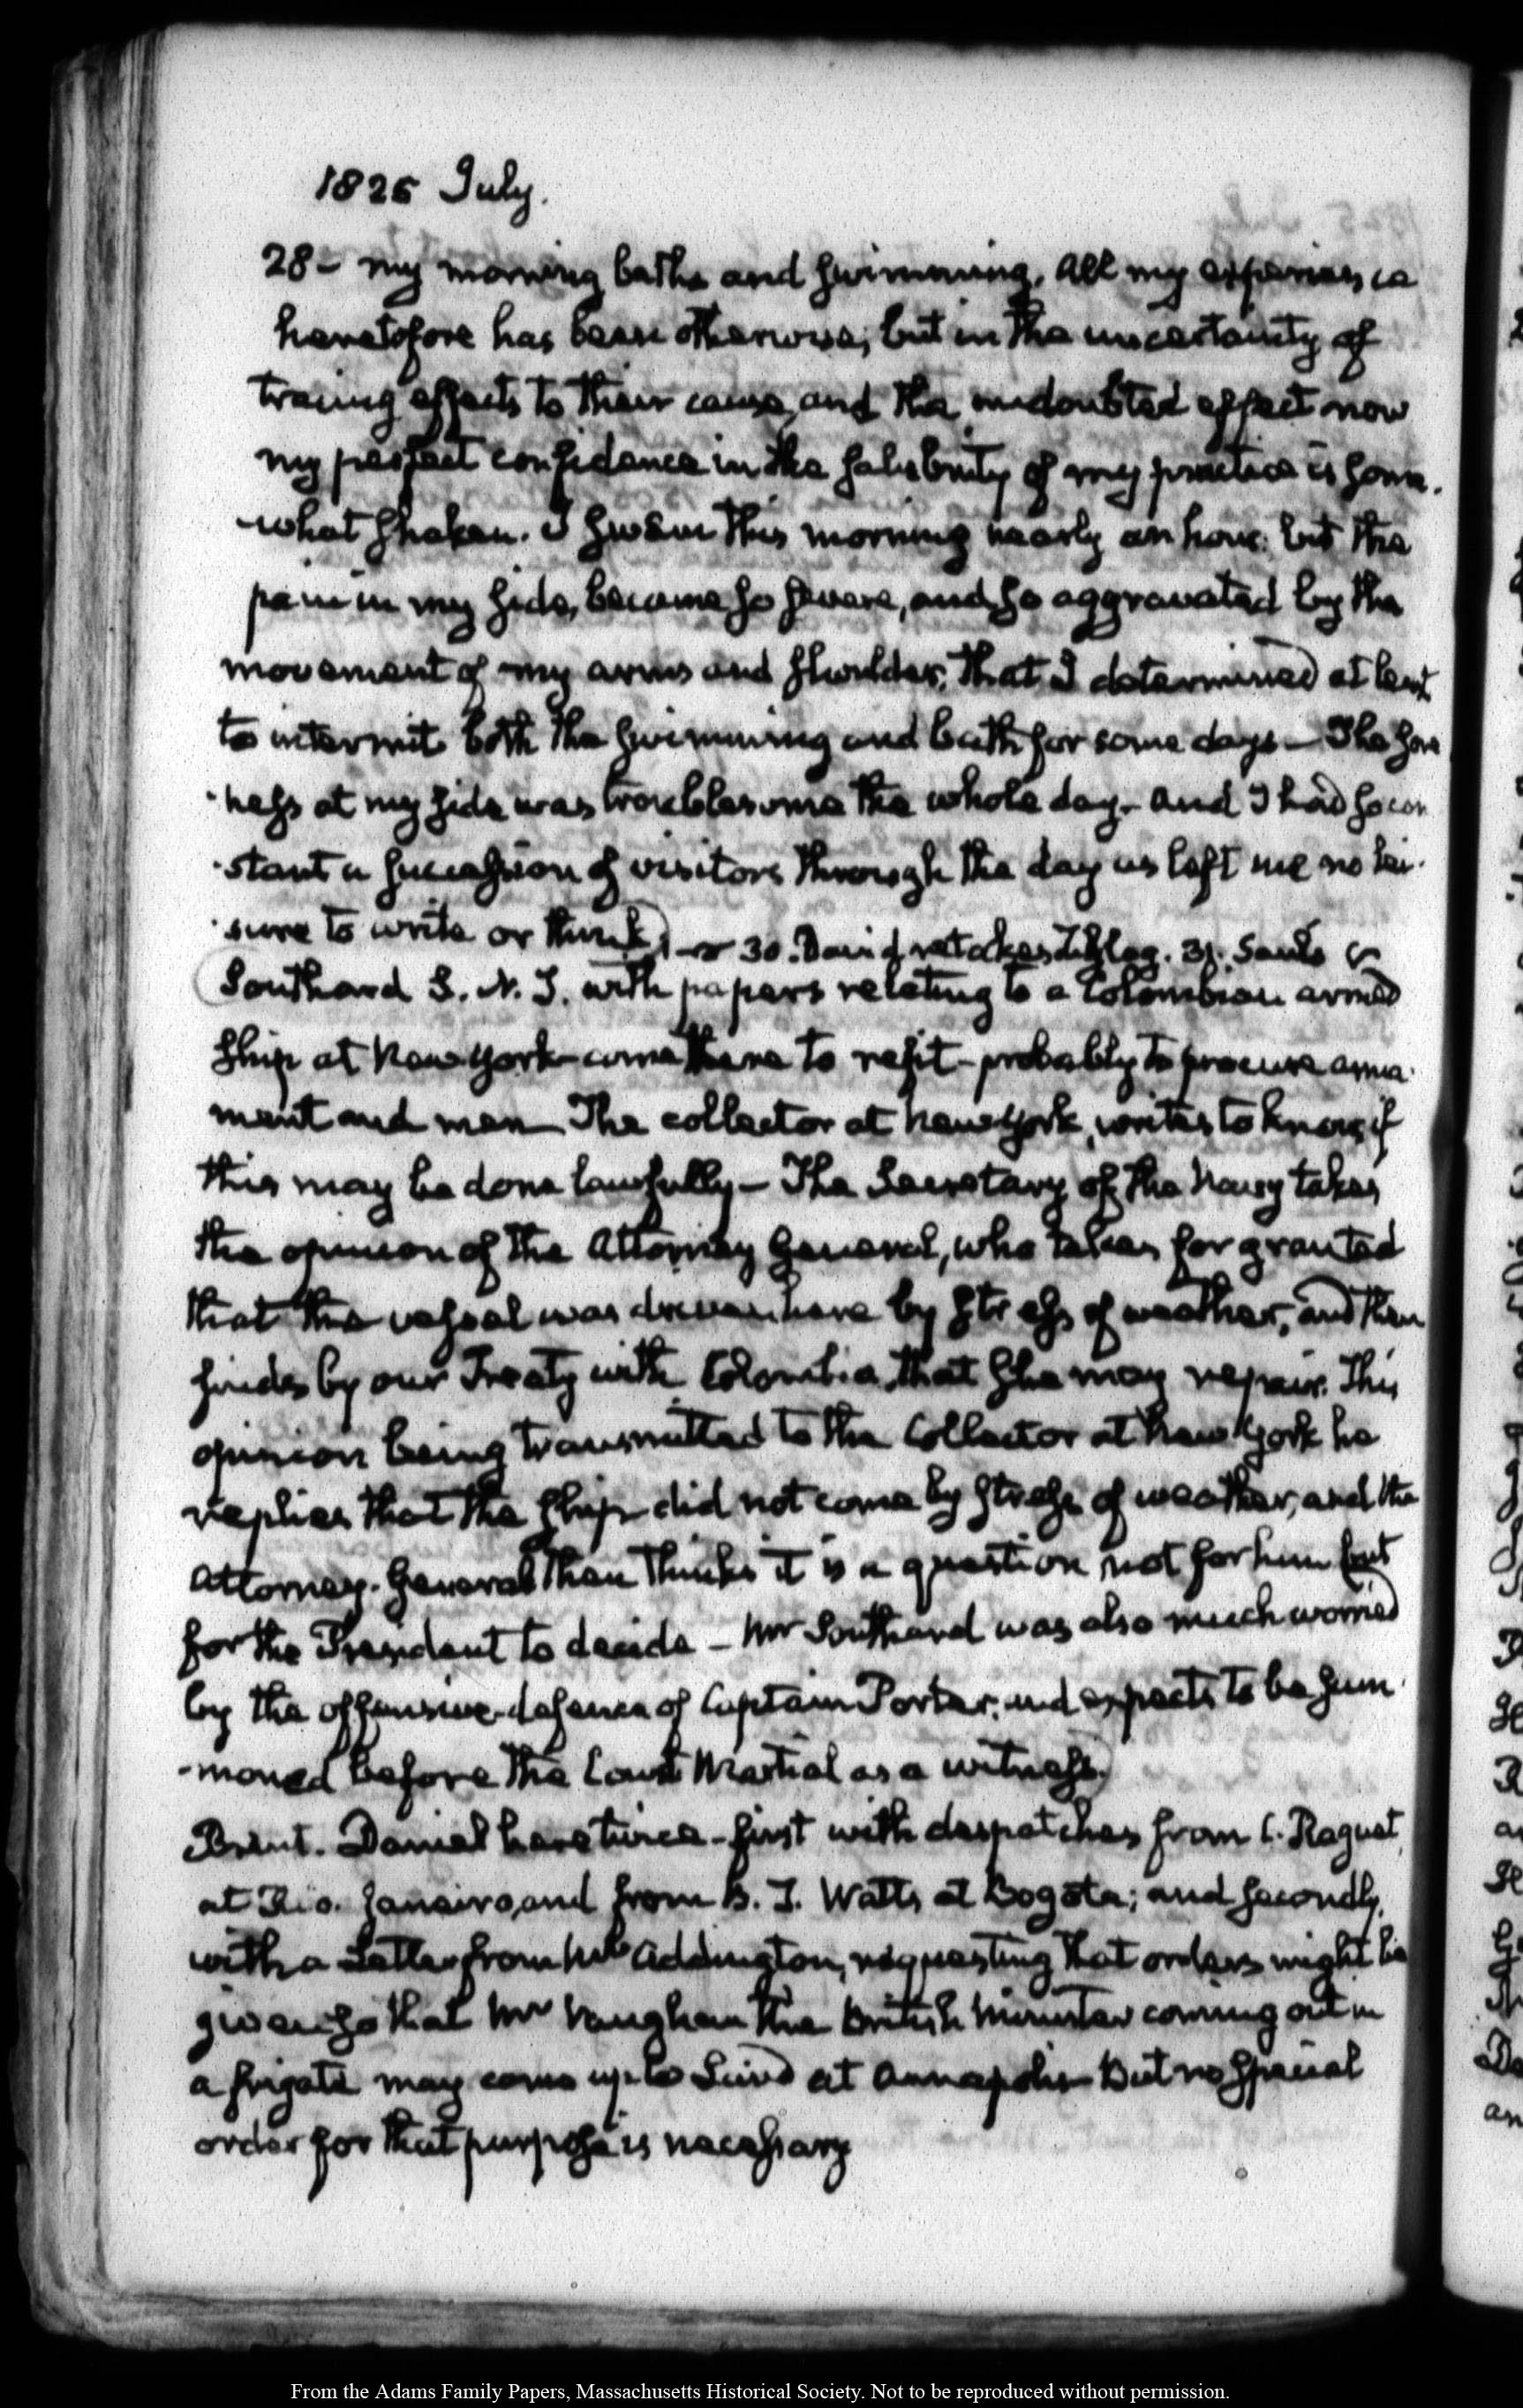 1825 July.
28 - my morning baths and swimming. All my experience
heretofore has been otherwise; but in the uncertainty of
tracing effects to their cause, and the undoubted effect now
my perfect confidence in the salubrity of my practice is some-
-what shaken. I swam this morning nearly an hour: but the
pain in my side, became so severe, and so aggravated by the
movement of my arms and shoulder, that I determined at least
to intermit both the swimming and bath for some days - The sore
-ness at my side was troublesome the whole day - and I had so con
-stant a succession of visitors through the day as left me no lei-
-sure to write or think) 30. David 31. Saul's
Southard S. N. J. with papers relating to a Colombian armed
ship at New York - come there to refit - probably to procure arma-
ment and men - The collector at New York, writes to know if
this may be done lawfully - The Secretary of the Navy takes
the opinion of the Attorney General, who takes for granted
that the vessel was driven here by stress of weather, and then
finds by our Treaty with Colombia, that she may repair. This
opinion being transmitted to the Collector at New York he
replies that the ship did not come by stress of weather, and the
Attorney-General then thinks it is a question not for him but
for the President to decide - Mr Southard was also much worried
by the offensive-defence of Captain Porter, and expects to be sum-
-moned before the Court Martial as a witness.)
Brent. Daniel here twice - first with despatches from C. Raguet,
at Rio. Janeiro, and from B. T. Watts at Bogota; and secondly,
with a Letter from Mr Addington, requesting that orders might be
given so that Mr Vaughan the British Minister coming out in
a frigate may come up to Land at Annapolis - But no special
order for that purpose is necessary
From the Adams Family Papers, Massachusetts Historical Society. Not to be reproduced without permission.